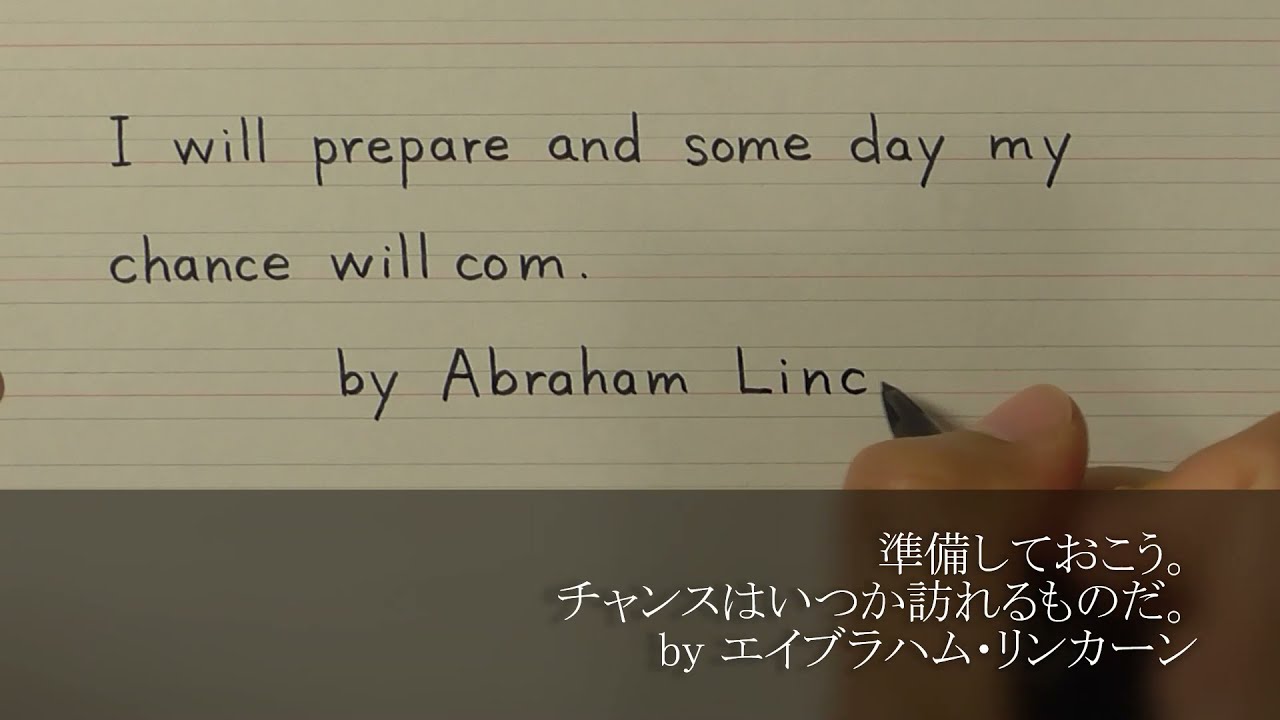 I will prepare and some day my
chance will com.
by Abraham Linc
準備しておこう。
チャンスはいつか訪れるものだ。
by エイブラハム・リンカーン